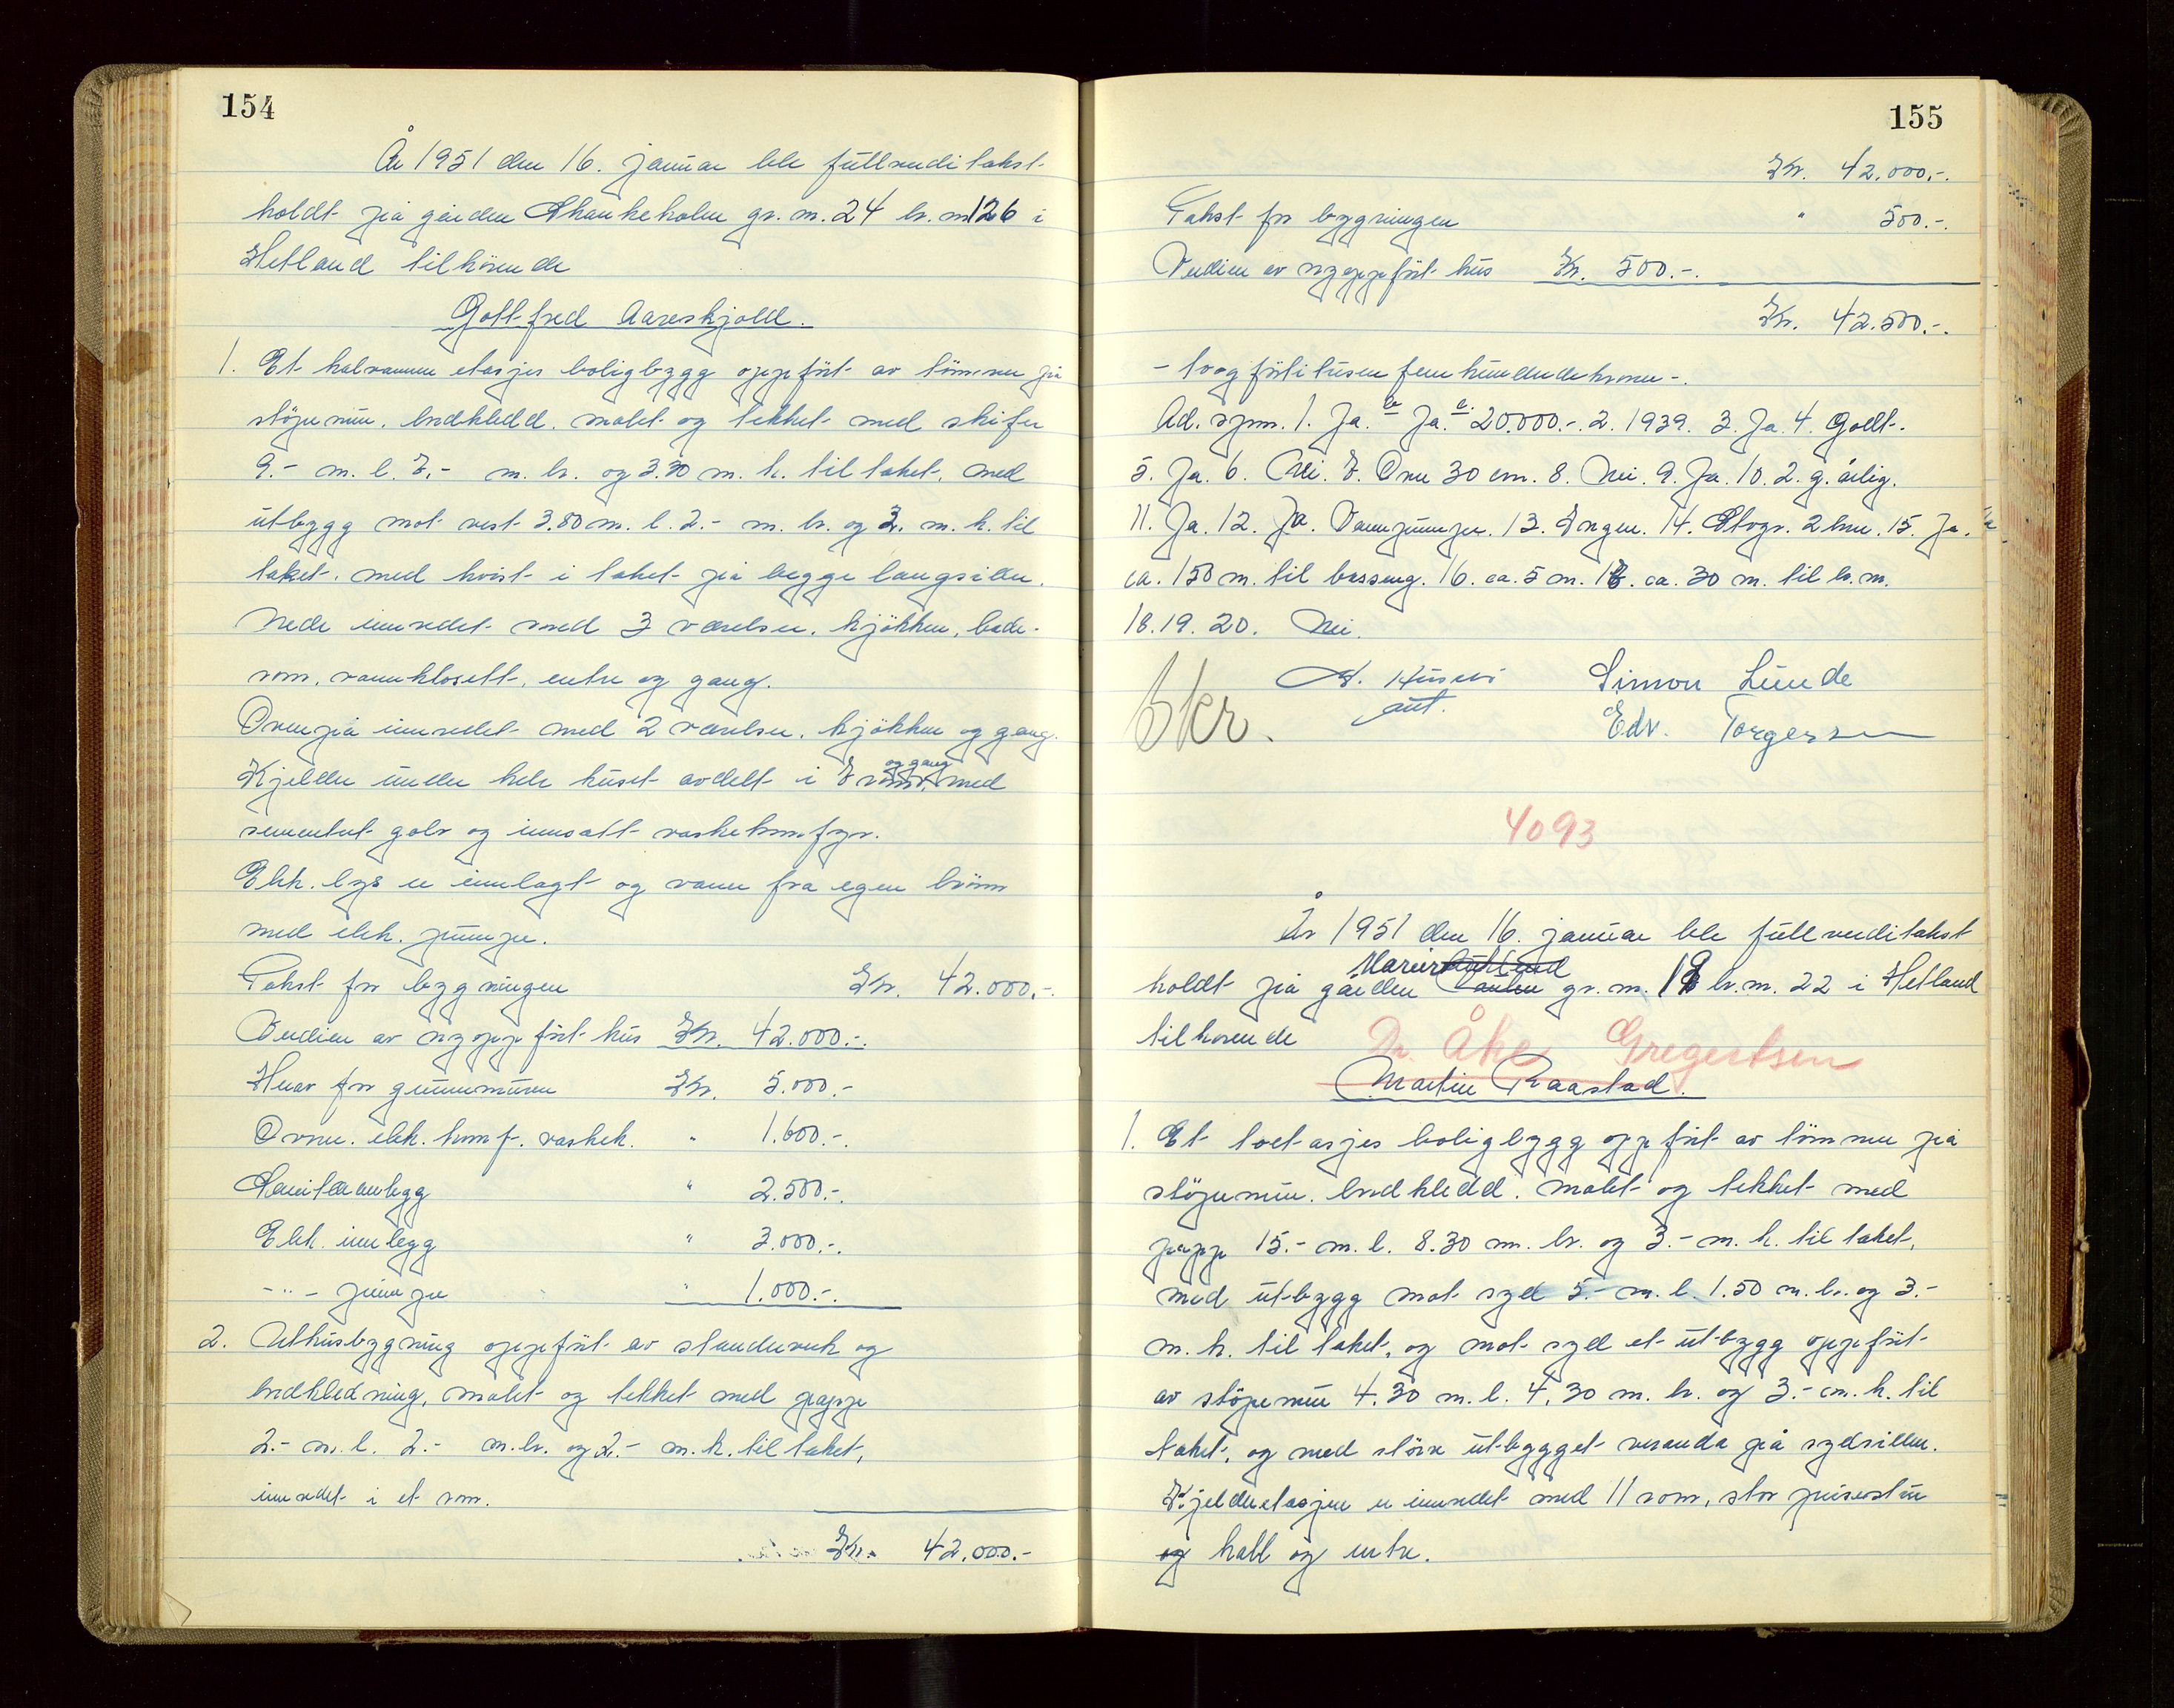 154
År 1951 den 16. januar ble fullverditakst
holdt på gården Skankeholm gr. n. 24 br. n. 126 i
Hetland tilhörende
Gottfred Aareskjold.
1. Et halvannen etasjes boligbygg oppfört av tömmer på
stöpemur, bordkledd, malet og tekket med skifer
9.- m. l. 7.- m. br. og 3.30 m. h. til taket, med
utbygg mot vest 3.80 m. l. 2.- m. br. og 3. m. h. til
taket, med kvist i taket på begge langsider.
Nede innredet med 3 værelser, kjökken, bade-
rom, vannklosett, entre og gang.
Ovenpå innredet med 2 værelser, kjökken og gang.
Kjelder under hele huset avdelt i 7 rom og gang, med
sementert golv og innsatt vaskekomfyr.
Elek. lys er innlagt og vann fra egen brönn
med elek. pumpe.
Takst for bygningen Kr. 42.000,-.
Verdien av nyoppfört hus Kr. 42.000.-.
Herav for grunnmuren Kr. 5.000.-
Ovner. elek. komf. vaskek. " 1.600.-.
Sanitæranlegg " 2.500.-.
Elek. innlegg " 3.000.-.
-"- pumpe " 1.000.-.
2. Uthusbygning oppfört av stenderverk og
bordkledning, malet og tekket med papp
2.- m. l. 2.- m. br. og 2.- m. h. til taket,
innredet i et rom.
Kr. 42.000.-
155
Kr. 42.000.-.
Takst for bygningen " 500.-.
Verdien av nyoppfört hus Kr. 500.-.
Kr. 42.500.-.
- toogförtitusen femhundrede kroner -.
Ad. spm. 1. Ja. b. Ja. c. 20.000.-. 2. 1939. 3. Ja. 4. Godt.
5. Ja. 6. Nei. 7. Over 30 cm. 8. Nei. 9. Ja. 10. 2. g. årlig.
11. Ja. 12. Ja. Vannpumpe. 13. Ingen. 14. Stogr. 2 km. 15. Ja.
ca. 150 m. til basseng. 16. ca. 5 m. 17. ca. 30 m. til br. m.
18. 19. 20. Nei.
Simon Lunde
Edv. Torgersen
5 kr.
4093
År 1951 den 16. januar ble fullverditakst
holdt på gården gr. n. 19 br. n. 22 i Hetland
tilhörende Dr. Åke Gregertsen
Martin Raastad.
1. Et toetasjes boligbygg oppfört av tömmer på
stöpemur, bordkledd, malet og tekket med
papp 15.- m. l. 8.30 m. br. og 3.- m. h. til taket,
med utbygg mot syd 5.- m. l. 1.50 m. br. og 3.-
m. h. til taket, og mot syd et utbygg oppfört
av stöpemur 4.30 m. l. 4.30 m. br. og 3.- m. h. til
taket, og med större utbygget veranda på sydsiden.
Kjelderetasjen er innredet med 11 rom, stor peisestue
og hall og entre.